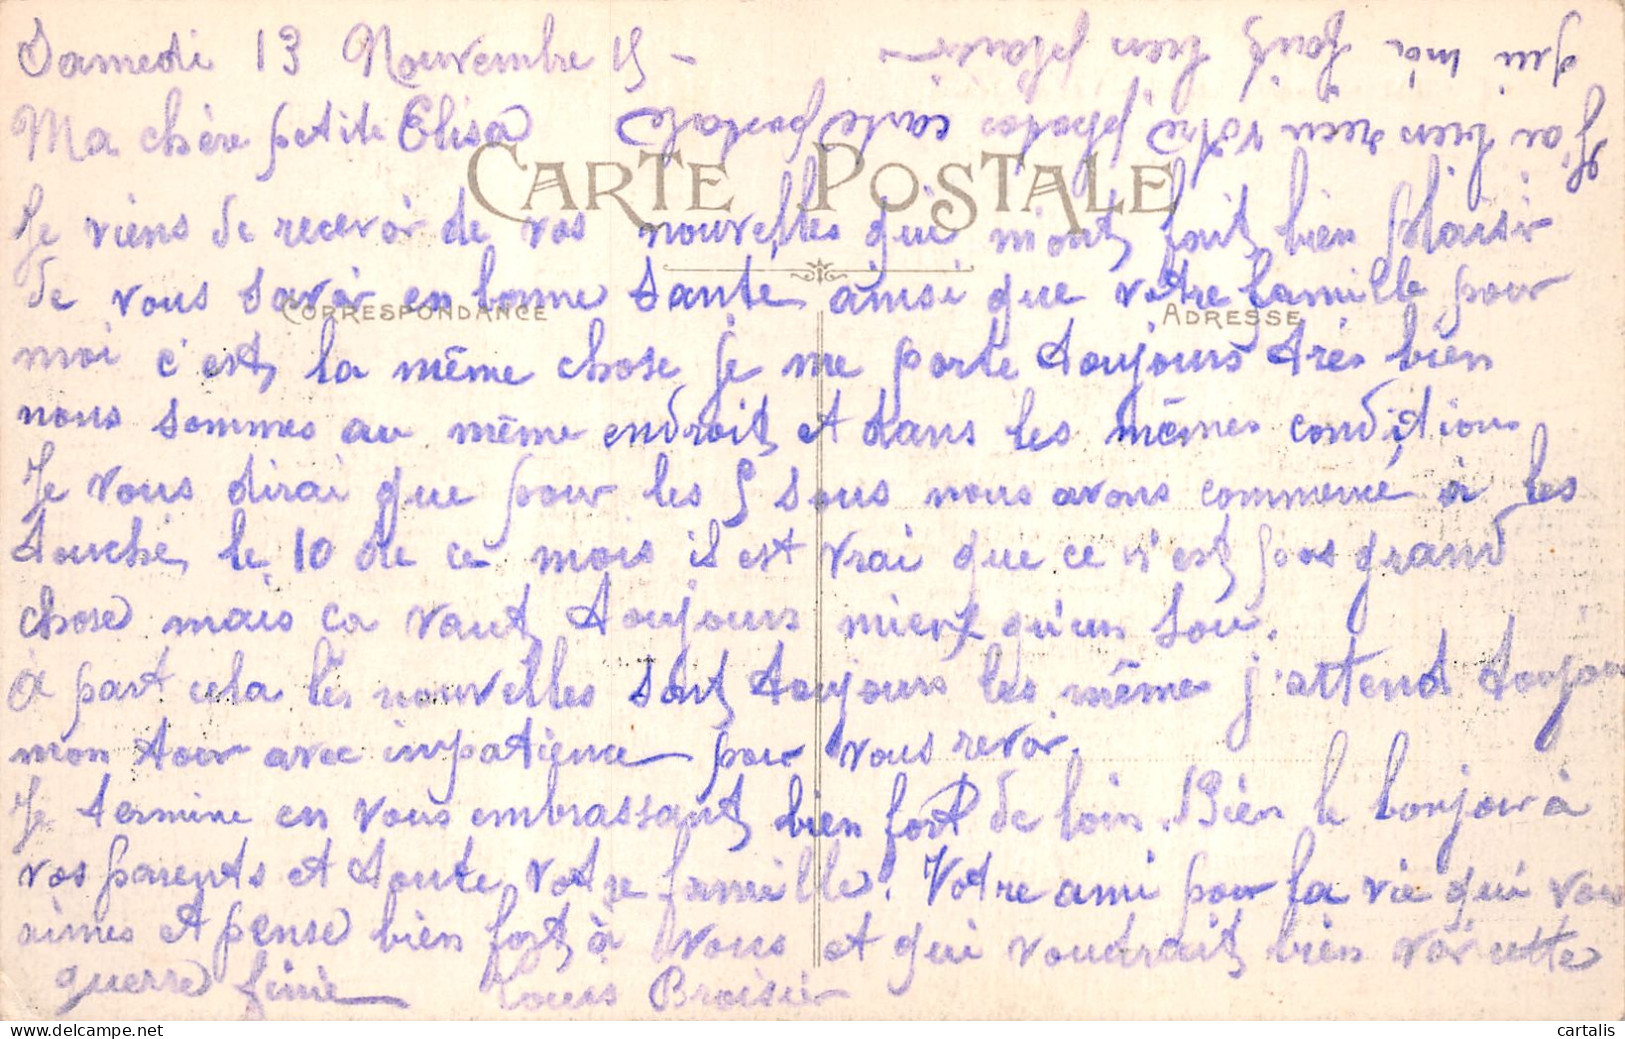 Samedi 13 Nouvembre 15 -
Ma chère petite Elisa
CARTE POSTALE
Je viens de recevoir de vos nouvelles qui mont fait bien plaisir
de vous savoir en bonne santé ainsi que votre famille pour
CORRESPONDANCE
ADRESSE
moi c'est la même chose je me porte toujours très bien
nous sommes au même endroit et dans les mêmes conditions
Je vous dirai que pour les 5 sous nous avons commencé à les
touché le 10 de ce mois il est vrai que ce n'est pas grand
chose mais ca vaut toujours mieux qu'un sou.
à part cela les nouvelles sont toujours les mêmes j'attend toujours
mon tour avec inpatience pour vous revoir.
Je termine en vous embrassant bien fort de loin. Bien le bonjour à
vos parents et toute votre famille. Votre ami pour la vie qui vous
aimes et pense bien fort à vous et qui voudrait bien voir cette
guerre finie Louis Broisier
J'ai bien reçu votre photo carte postale
qui m'a fait bien plaisir
cartalis
www.delcampe.net